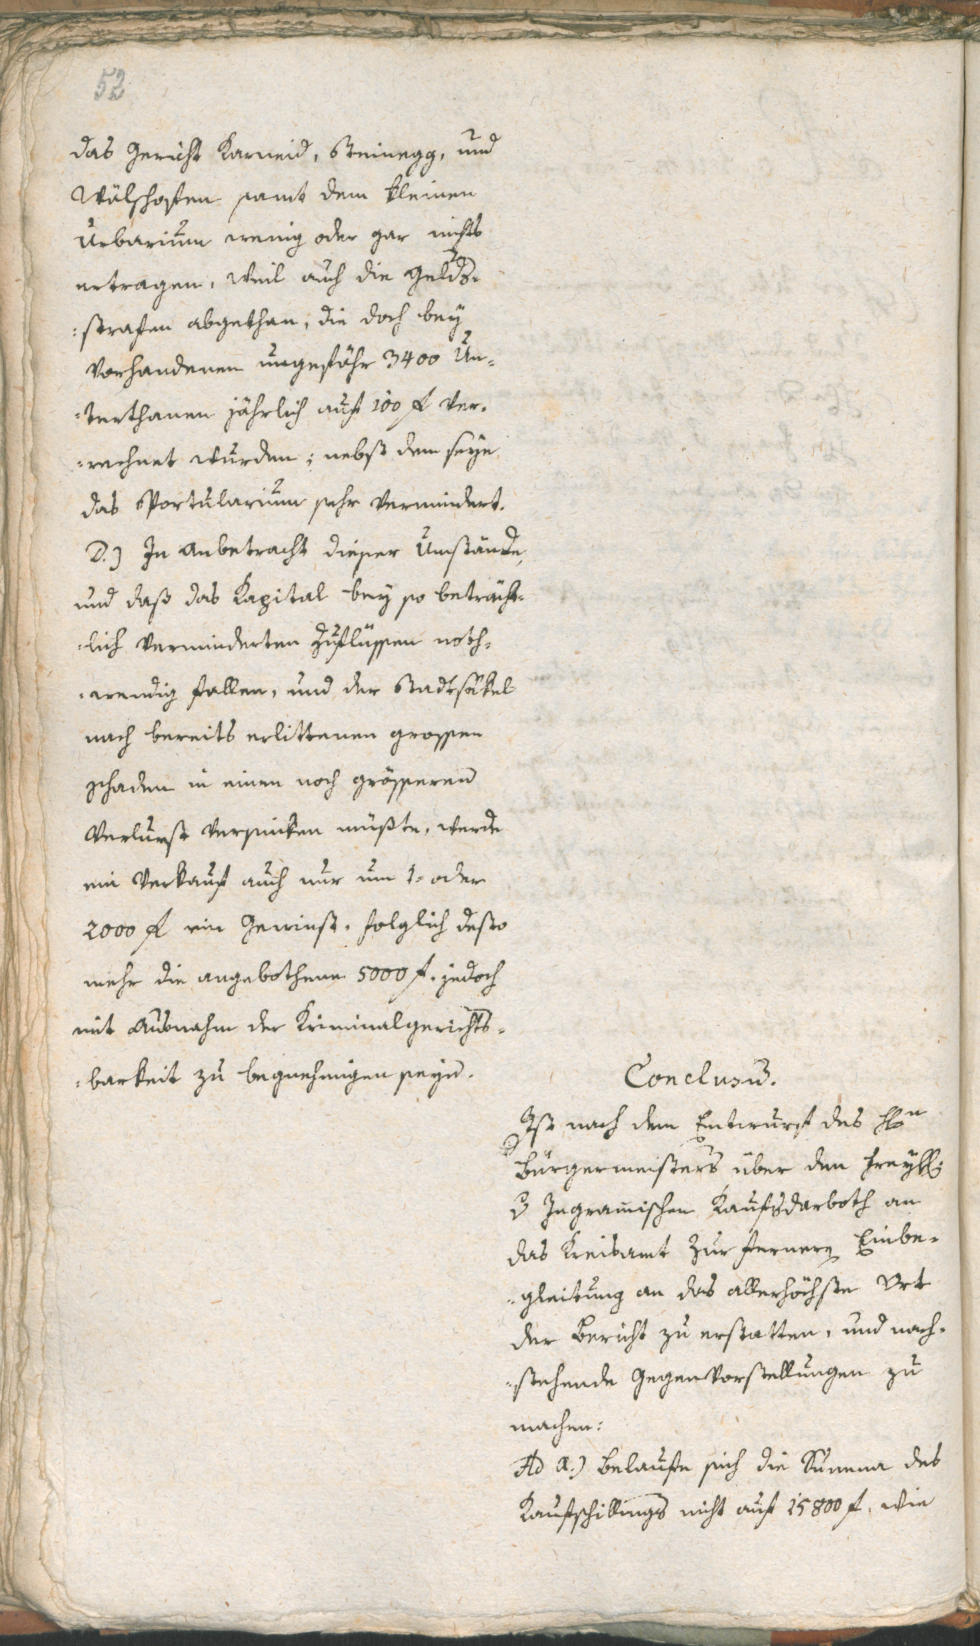 52
das Gericht Karneid, Steinegg, und
Wälschofen samt dem kleinen
Urbarium wenig oder gar nichts
ertragen, weil auch die Gelds-
-strafen abgethan, die doch bey
vorhandenen ungefähr 3400 Un-
-terthanen jährlich auf 100 f ver-
-rechnet wurden; nebst dem seye
das Sportularium sehr vermindert.
D.) In Anbetracht dieser Umstände,
und daß das Kapital bey so beträcht-
-lich verminderten Zuflüssen noth-
-wendig fallen, und der Stadtsäkel
nach bereits erlittenen grossen
Schaden in einen noch grösseren
Verlurst versinken müßte, werde
ein Verkauf auch nur um 1- oder
2000 f ein Gewinst, folglich desto
mehr die angebothene 5000 f. jedoch
mit Ausnahm der Kriminalgerichts-
-barkeit zu begnehmigen seyn.
Conclusū.
Ist nach dem Entwurf des Hn
Bürgermeisters über den Freyhl:
v Ingramischen Kaufsdarboth an
das Kreisamt zur fernern Einbe-
-gleitung an das allerhöchste Ort
der Bericht zu erstatten, und nach-
-stehende Gegenvorstellungen zu
machen:
Ad A.) Belaufe sich die Summa des
Kaufschillings nicht auf 15800 f, wie